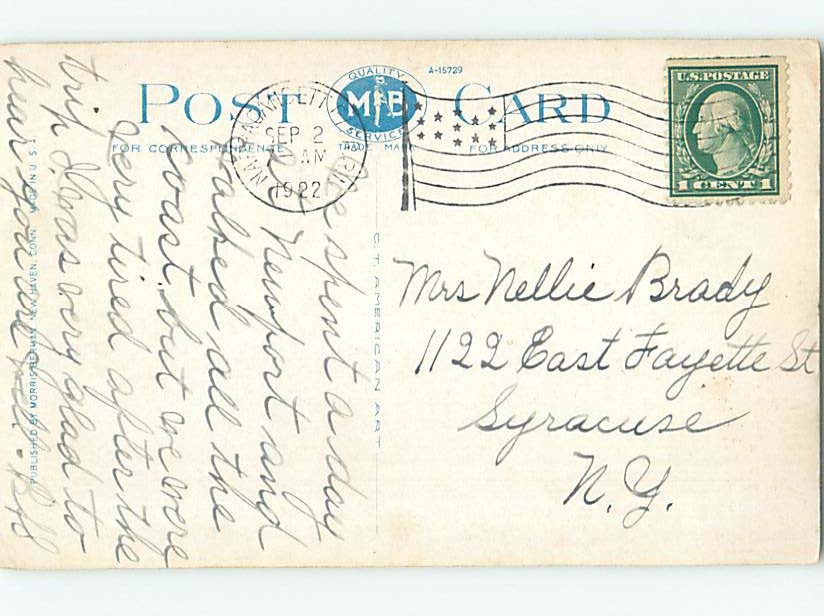 POST CARD
QUALITY
M B
SERVICE
TRADE MARK
A-15729
FOR CORRESPONDENCE
FOR ADDRESS ONLY
NARRAGANSETT PIER R.I.
SEP 2
AM
1922
U.S. POSTAGE
1 CENT 1
We spent a day
Newport and
walked all the
coast but we were
very tired after the
trip I was very glad to
hear you are well.
C.T. AMERICAN ART
PUBLISHED BY MORRIS BERMAN, NEW HAVEN, CONN. MADE IN U.S.A.
Mrs Nellie Brady
1122 East Fayette St
Syracuse
N.Y.